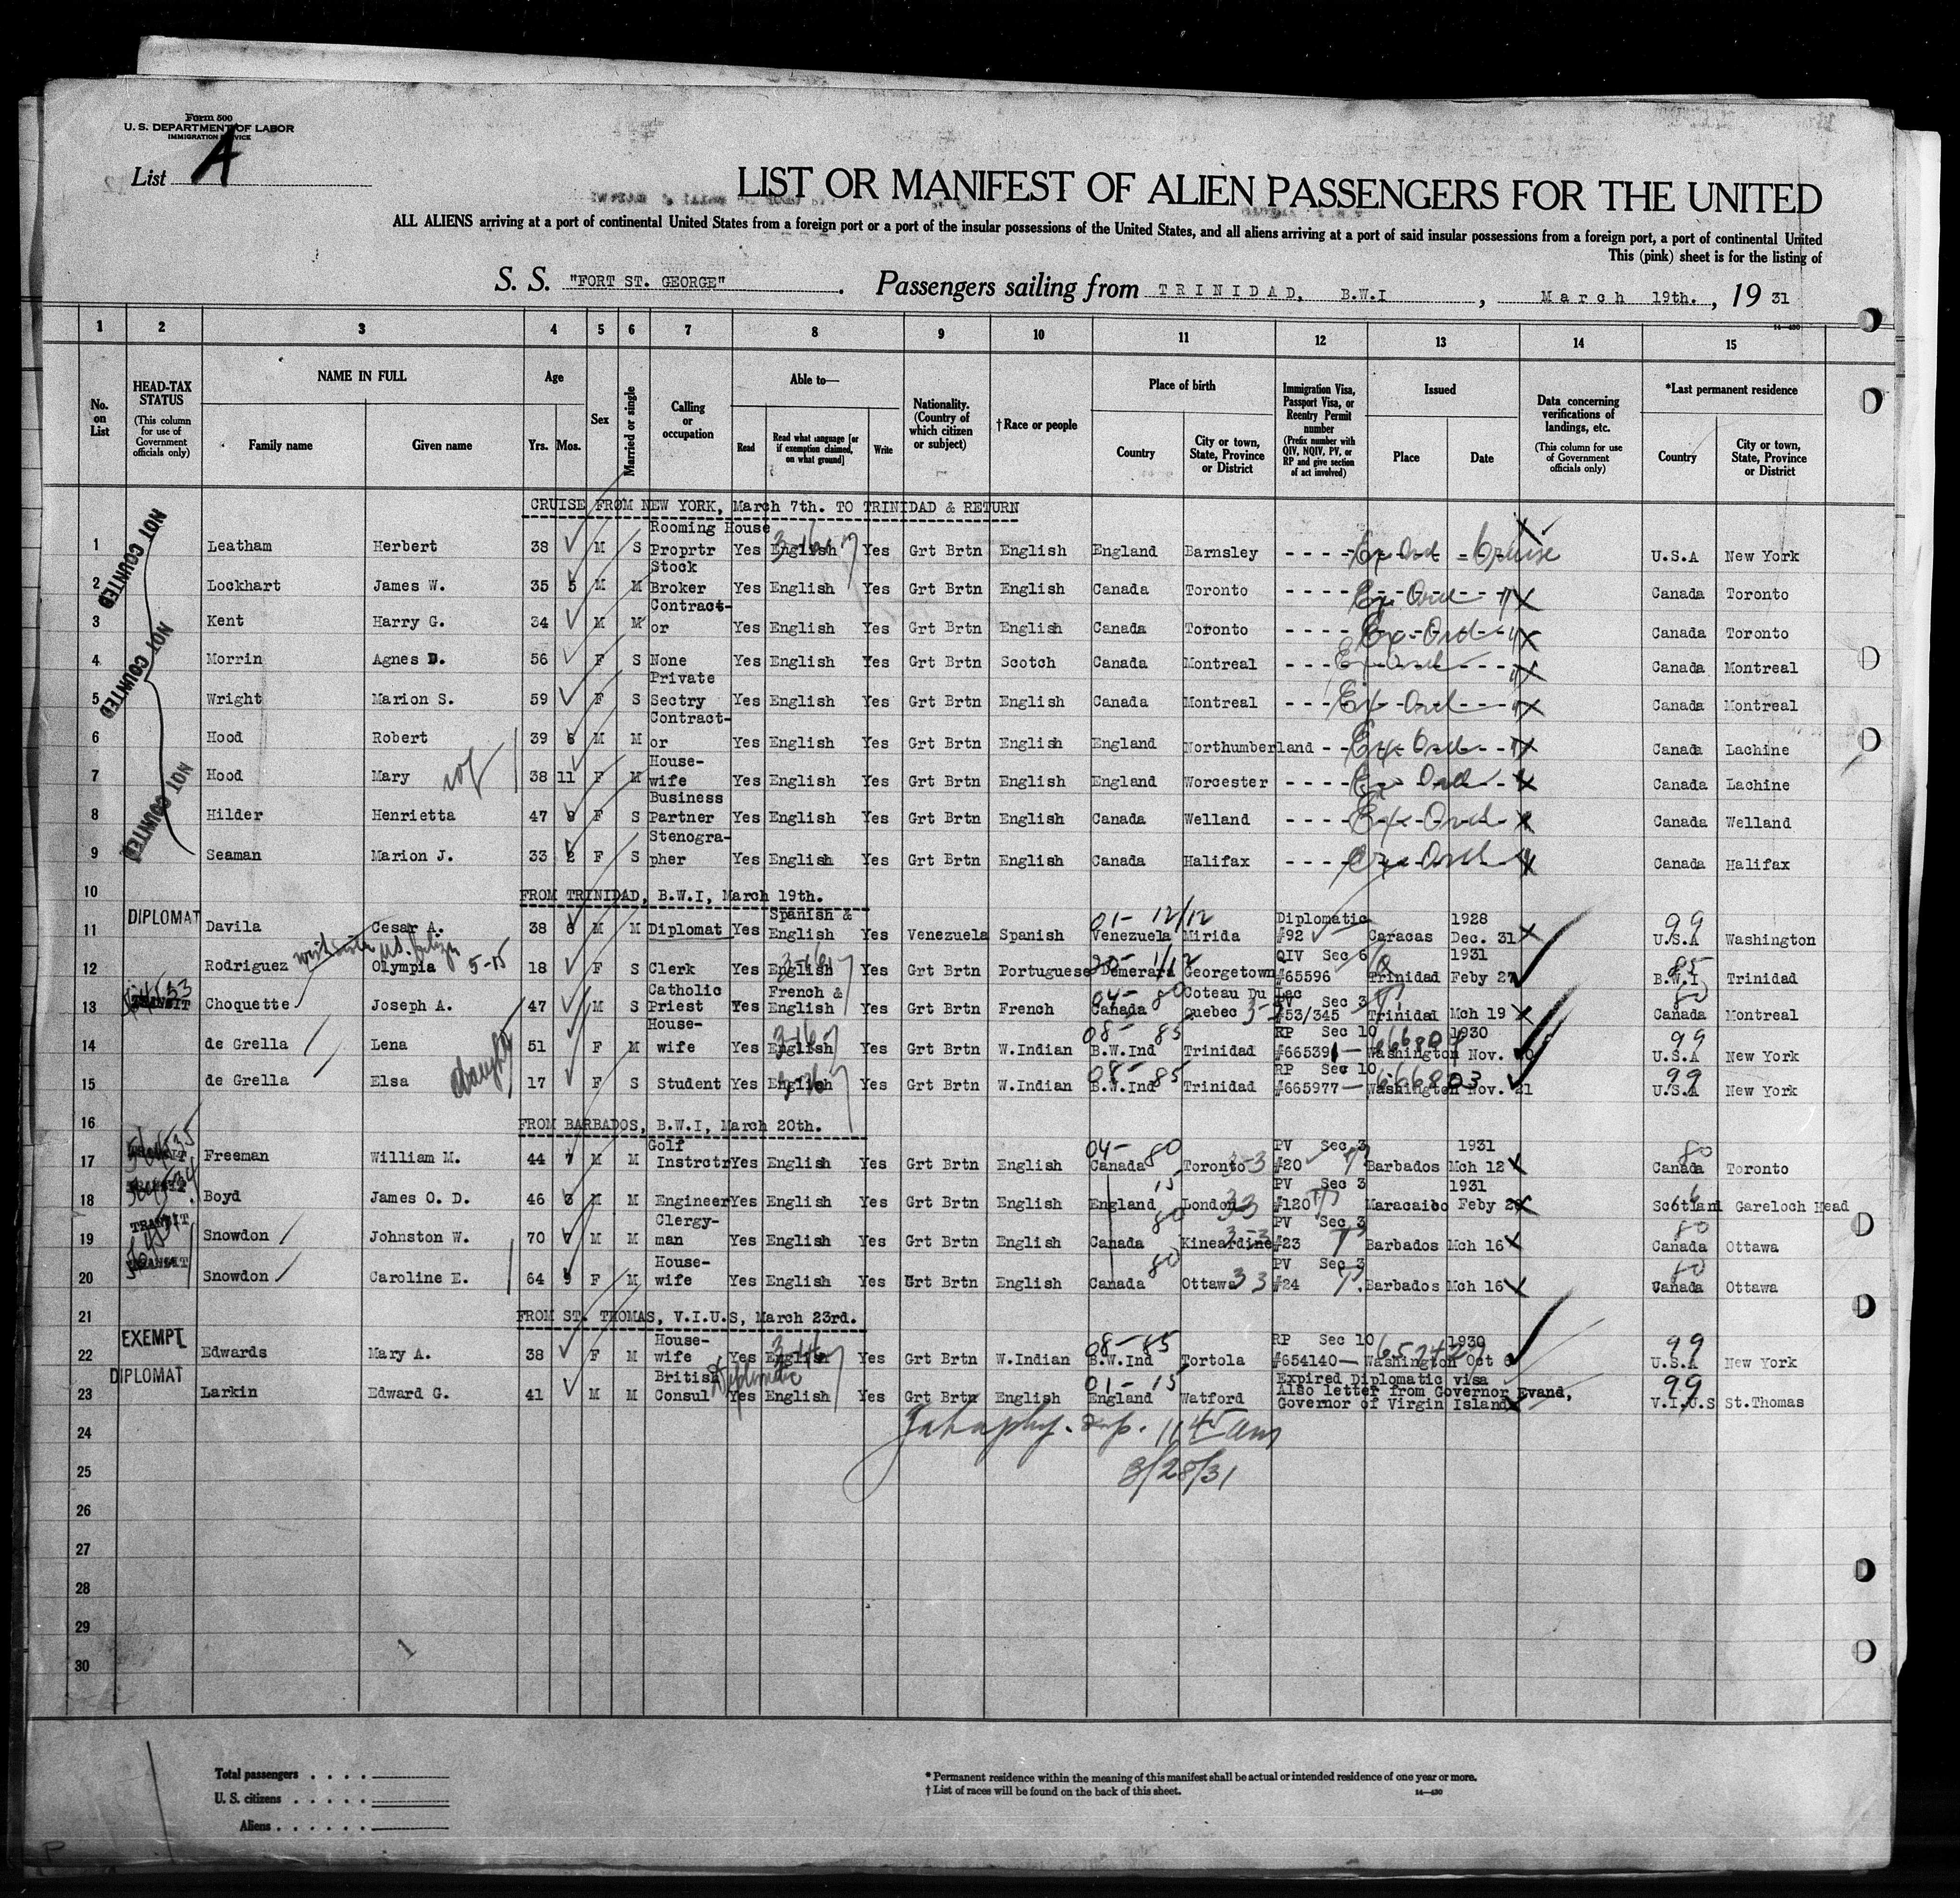 Form 500
U. S. DEPARTMENT OF LABOR
IMMIGRATION SERVICE
List A
LIST OR MANIFEST OF ALIEN PASSENGERS FOR THE UNITED
ALL ALIENS arriving at a port of continental United States from a foreign port or a port of the insular possessions of the United States, and all aliens arriving at a port of said insular possessions from a foreign port, a port of continental United
This (pink) sheet is for the listing of
S. S. "FORT ST. GEORGE" . Passengers sailing from TRINIDAD, B.W.I , March 19th. , 19 31
14—430
1 2 3 4 5 6 7 8 9 10 11 12 13 14 15
No. on List
HEAD-TAX STATUS (This column for use of Government officials only)
NAME IN FULL Family name Given name
Age Yrs. Mos.
Sex
Married or single
Calling or occupation
Able to— Read Read what language [or if exemption claimed, on what ground] Write
Nationality. (Country of which citizen or subject)
†Race or people
Place of birth Country City or town, State, Province or District
Immigration Visa, Passport Visa, or Reentry Permit number (Prefix number with QIV, NQIV, PV, or RP and give section of act involved)
Issued Place Date
Data concerning verifications of landings, etc. (This column for use of Government officials only)
*Last permanent residence Country City or town, State, Province or District
CRUISE FROM NEW YORK, March 7th. TO TRINIDAD & RETURN
NOT COUNTED
NOT COUNTED
NOT COUNTED
1 Leatham Herbert 38 M S Rooming House Proprtr Yes English Yes Grt Brtn English England Barnsley Ex Ord Cruise U.S.A New York
2 Lockhart James W. 35 5 M M Stock Broker Yes English Yes Grt Brtn English Canada Toronto Ex Ord " Canada Toronto
3 Kent Harry G. 34 M M Contract-or Yes English Yes Grt Brtn English Canada Toronto Ex Ord " Canada Toronto
4 Morrin Agnes D. 56 F S None Yes English Yes Grt Brtn Scotch Canada Montreal Ex Ord " Canada Montreal
5 Wright Marion S. 59 F S Private Sectry Yes English Yes Grt Brtn English Canada Montreal Ex Ord " Canada Montreal
6 Hood Robert 39 M M Contract-or Yes English Yes Grt Brtn English England Northumberland Ex Ord " Canada Lachine
7 Hood Mary wf 38 11 F M House-wife Yes English Yes Grt Brtn English England Worcester Ex Ord Canada Lachine
8 Hilder Henrietta 47 F S Business Partner Yes English Yes Grt Brtn English Canada Welland Ex Ord Canada Welland
9 Seaman Marion J. 33 F S Stenogra-pher Yes English Yes Grt Brtn English Canada Halifax Ex Ord Canada Halifax
10 FROM TRINIDAD, B.W.I, March 19th.
11 DIPLOMAT Davila Cesar A. 38 M M Diplomat Yes Spanish & English Yes Venezuela Spanish 01- 12/12 Venezuela Mirida Diplomatic #92 Caracas 1928 Dec. 31 99 U.S.A Washington
12 Rodriguez Olympia 5-15 18 F S Clerk Yes English Yes Grt Brtn Portuguese Demerara Georgetown QIV Sec 6 #65596 Trinidad 1931 Feby 27 85 B.W.I Trinidad
13 TRANSIT Choquette Joseph A. 47 M S Catholic Priest Yes French & English Yes Grt Brtn French 04- 80 Canada Coteau Du Lac Quebec PV Sec 3 #53/345 Trinidad Mch 19 80 Canada Montreal
14 de Grella Lena 51 F M House-wife Yes English Yes Grt Brtn W.Indian 08- 85 B.W.Ind Trinidad RP Sec 10 Washington 1930 Nov. 99 U.S.A New York
15 de Grella Elsa 17 F S Student Yes English Yes Grt Brtn W.Indian 08- 85 B.W.Ind Trinidad RP Sec 10 #665977 666803 Washington Nov. 21 99 U.S.A New York
16 FROM BARBADOS, B.W.I, March 20th.
17 TRANSIT Freeman William M. 44 M M Golf Instrctr Yes English Yes Grt Brtn English 04- 80 Canada Toronto 3-3 PV Sec 3 #20 Barbados 1931 Mch 12 80 Canada Toronto
18 TRANSIT Boyd James O. D. 46 M M Engineer Yes English Yes Grt Brtn English 15 England London 33 PV Sec 3 #120 Maracaibo 1931 Feby Scotland Gareloch Head
19 TRANSIT Snowdon Johnston W. 70 M M Clergy-man Yes English Yes Grt Brtn English 80 Canada Kincardine 3-3 PV Sec 3 #23 Barbados Mch 16 80 Canada Ottawa
20 TRANSIT Snowdon Caroline E. 64 F M House-wife Yes English Yes Grt Brtn English 80 Canada Ottawa 33 PV Sec 3 #24 Barbados Mch 16 80 Canada Ottawa
21 FROM ST. THOMAS, V.I.U.S, March 23rd.
22 EXEMPT Edwards Mary A. 38 F M House-wife Yes English Yes Grt Brtn W.Indian 08- 85 B.W.Ind Tortola RP Sec 10 #654140 Washington 1930 Oct 6 99 U.S.A New York
23 DIPLOMAT Larkin Edward G. 41 M M British Consul Diplomatic Yes English Yes Grt Brtn English 01- 15 England Watford Expired Diplomatic visa Also letter from Governor Evand, Governor of Virgin Island 99 V.I.U.S St.Thomas
24
11 45 am
25
3/28/31
26
27
28
29
30
Total passengers
U. S. citizens
Aliens
* Permanent residence within the meaning of this manifest shall be actual or intended residence of one year or more.
† List of races will be found on the back of this sheet.
14—430